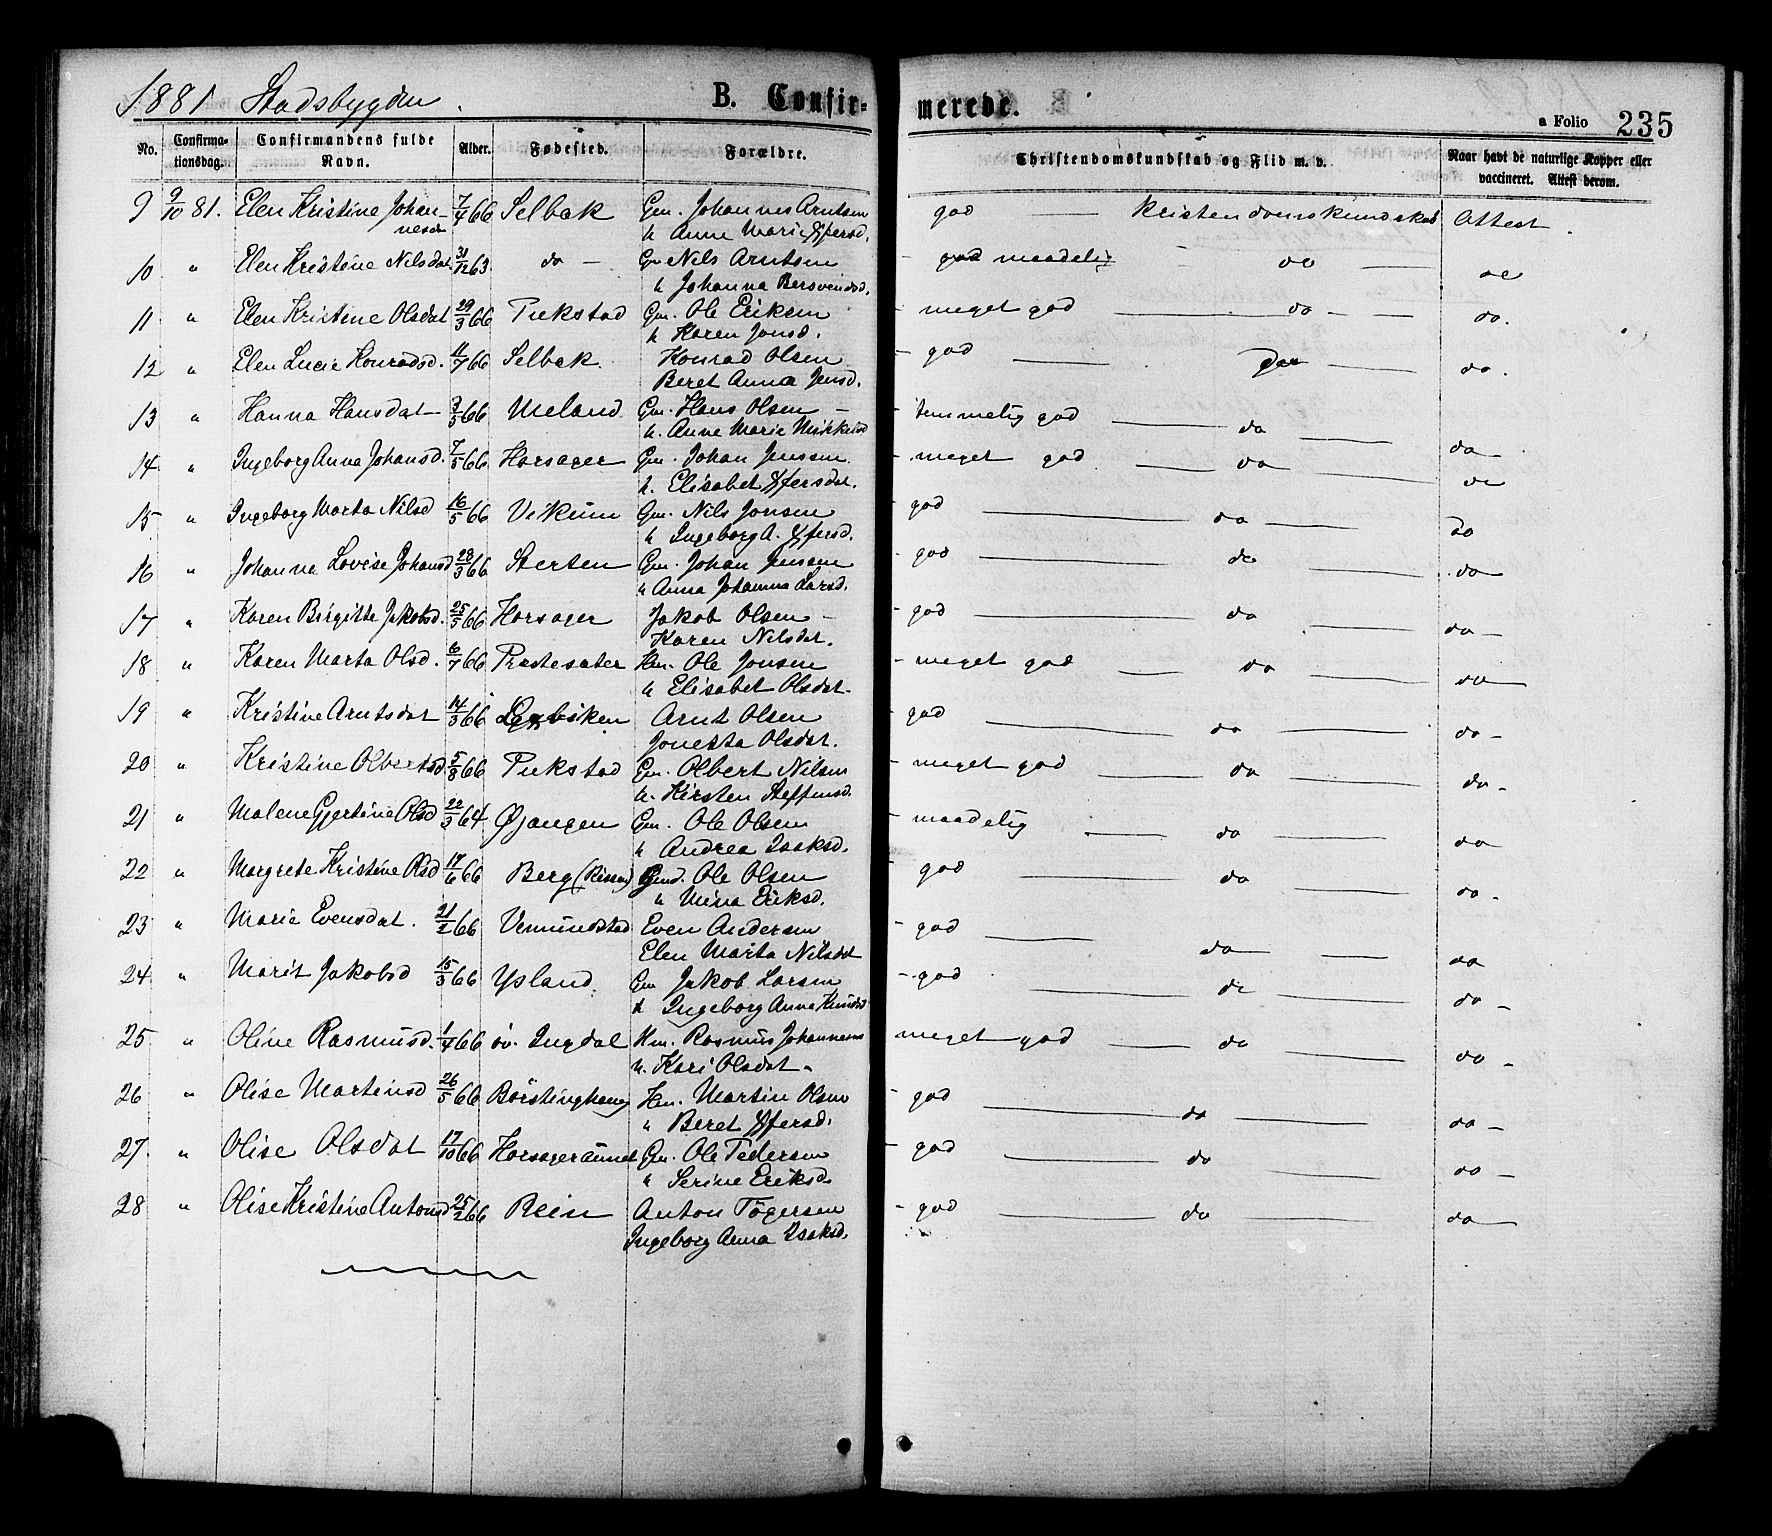 1881 Stadsbygden. B. Confirmerede. a Folio 235
No. Confirmationsdag. Confirmandens fulde Navn. Alder. Fødested. Forældre. Christendomskundskab og Flid m. v. Naar havt de naturlige Kopper eller vaccineret. Attest derom.
9 9/10 81. Elen Kristine Johan- 7/4 66 Selbak Gm. Johannes Arntsen god — Kristendomskundskab Attest.
nesdr h Anne Marie Yffersd.
10 " Elen Kristine Nilsdat. 31/12 63 do - Gm Nils Arntsen - god maadelig - do — do
h Johanna Bersvendsd.
11 " Elen Kristine Olsdat 29/3 66 Pukstad Gm. Ole Eriksen - meget god — do — do.
h Karen Jonsd.
12 " Elen Lucie Konradsd. 11/7 66 Selbak. Konrad Olsen - god — do — do.
Beret Anna Jensd.
13 " Hanna Hansdat- 9/5 66 Uueland Gm. Hans Olsen - - temmelig god — do — do -
h. Anne Marie Mikkelsd
14 " Ingeborg Anna Johansd. 7/5 66 Horsager Gm. Johan Jensen - meget god — do — do
h. Elisabet Yffersdat.
15 " Ingeborg Marta Nilsd 16/5 66 Vekum Gm. Nils Jonsen - god — do — do
h Ingeborg A. Yffersd.
16 " Johanna Lovise Johansd 28/3 66 Sterten Gm. Johan Jensen - god — do — do
h Anna Johanna Larsd.
17 " Karen Birgitte Jakobsd. 25/5 66 Horsager Jakob Olsen - - god — do — do -
Karen Nilsdat.
18 " Karen Marta Olsd. 6/7 66 Prestesater Hm. Ole Jonsen - meget god — do — do
h Elisabet Olsdat.
19 " Kristine Arntsdat 14/3 66 Arnt Olsen - god — do — do -
Jonetta Olsdat.
20 " Kristine Olbertsd 5/8 66 Pukstad Gm. Olbert Nilsen - meget god — do — do -
h. Kirsten Steffensd.
21 " Malene Gjertine Olsd 22/3 64 Øjangen Gm. Ole Olsen - maadelig — do — do
h Andrea Isaksd.
22 " Margrete Kristine Olsd 17/6 66 Berg (Rissen) Gmd. Ole Olsen - god — do — do -
h Mina Eriksd.
23 " Marie Evensdat. 21/2 66 Vemundstad Even Andersen - god — do — do
Elen Marta Nilsdat
24 " Marit Jakobsd 15/3 66 Ysland. Gm Jakob Larsen - god — do — do -
h Ingeborg Anne Knudsd
25 " Oline Rasmusd. 1/4 66 öv. Ingdal Hm. Rasmus Johannesen meget god — do — do -
h. Kari Olsdat -
26 " Olise Martinsd 26/5 66 Börstinghaug Hm. Martin Olsen - god — do — do -
h Beret Yffersd.
27. " Olise Olsdat 17/10 66 Horsageraunet Gm. Ole Pedersen - god — do — do -
h Serine Eriksd.
28 " Olise Kristine Antonsd 25/2 66 Rein Anton Tögersen - god — do — do
Ingeborg Anna Isaksd.